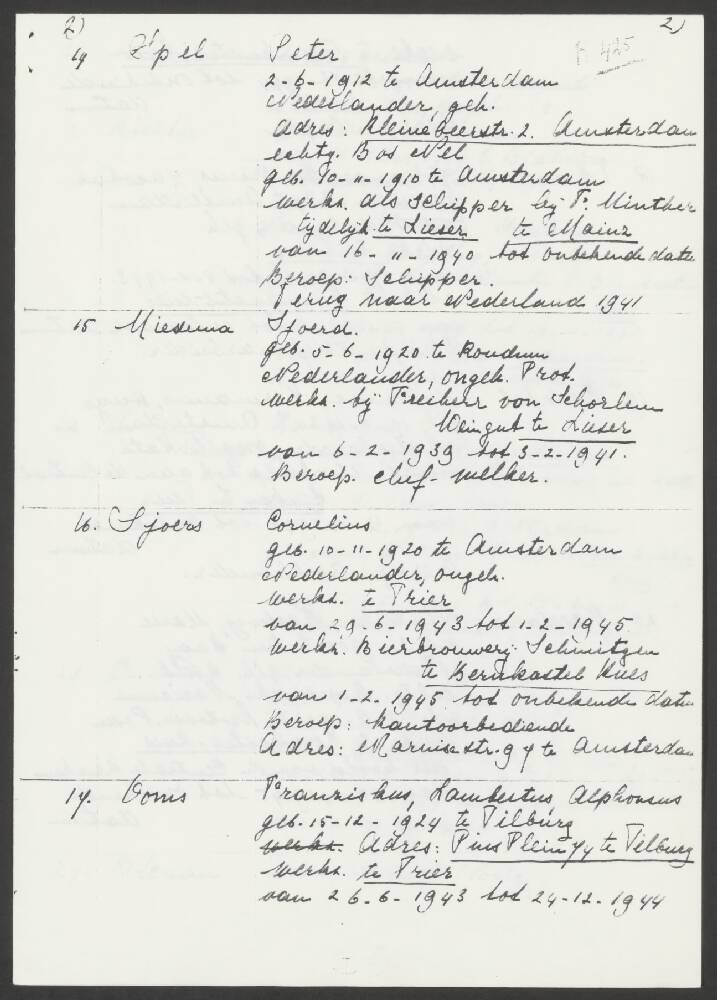 2) 2)
14 Z'pel Peter
2-6-1912 te Amsterdam
Nederlander, geh.
Adres: Kleine beerstr. 2. Amsterdam
echtg. Bos Nel
geb. 10-11-1910 te Amsterdam
werkz. als Schipper bij F. Minther
tijdelijk te Lieser te Mainz
van 16-11-1940 tot onbekende datu
Beroep: Schipper.
Terug naar Nederland 1941
15 Miedema Sjoerd.
geb. 5-6-1920 te Koudum
Nederlander, ongeh. Prot.
werkz. bij Freiherr von Schorlem
Weingut te Lieser
van 6-2-1939 tot 3-2-1941.
Beroep. chef-melker.
16. Sjoers Cornelius
geb. 10-11-1920 te Amsterdam
Nederlander, ongeh.
werkz. te Trier
van 29-6-1943 tot 1-2-1945
werkz. Bierbrouwerij Schmitgen
te Bernkastel Kues
van 1-2-1945 tot onbekende datu
Beroep: kantoorbediende
Adres: Marnixstr. 97 te Amsterdam
17. Ooms Franziskus, Lambertus, Alphonsus
geb. 15-12-1924 te Tilburg
werkz. Adres: Pius Plein 77 te Tilburg
werkz. te Trier
van 26-6-1943 tot 24-12-1944